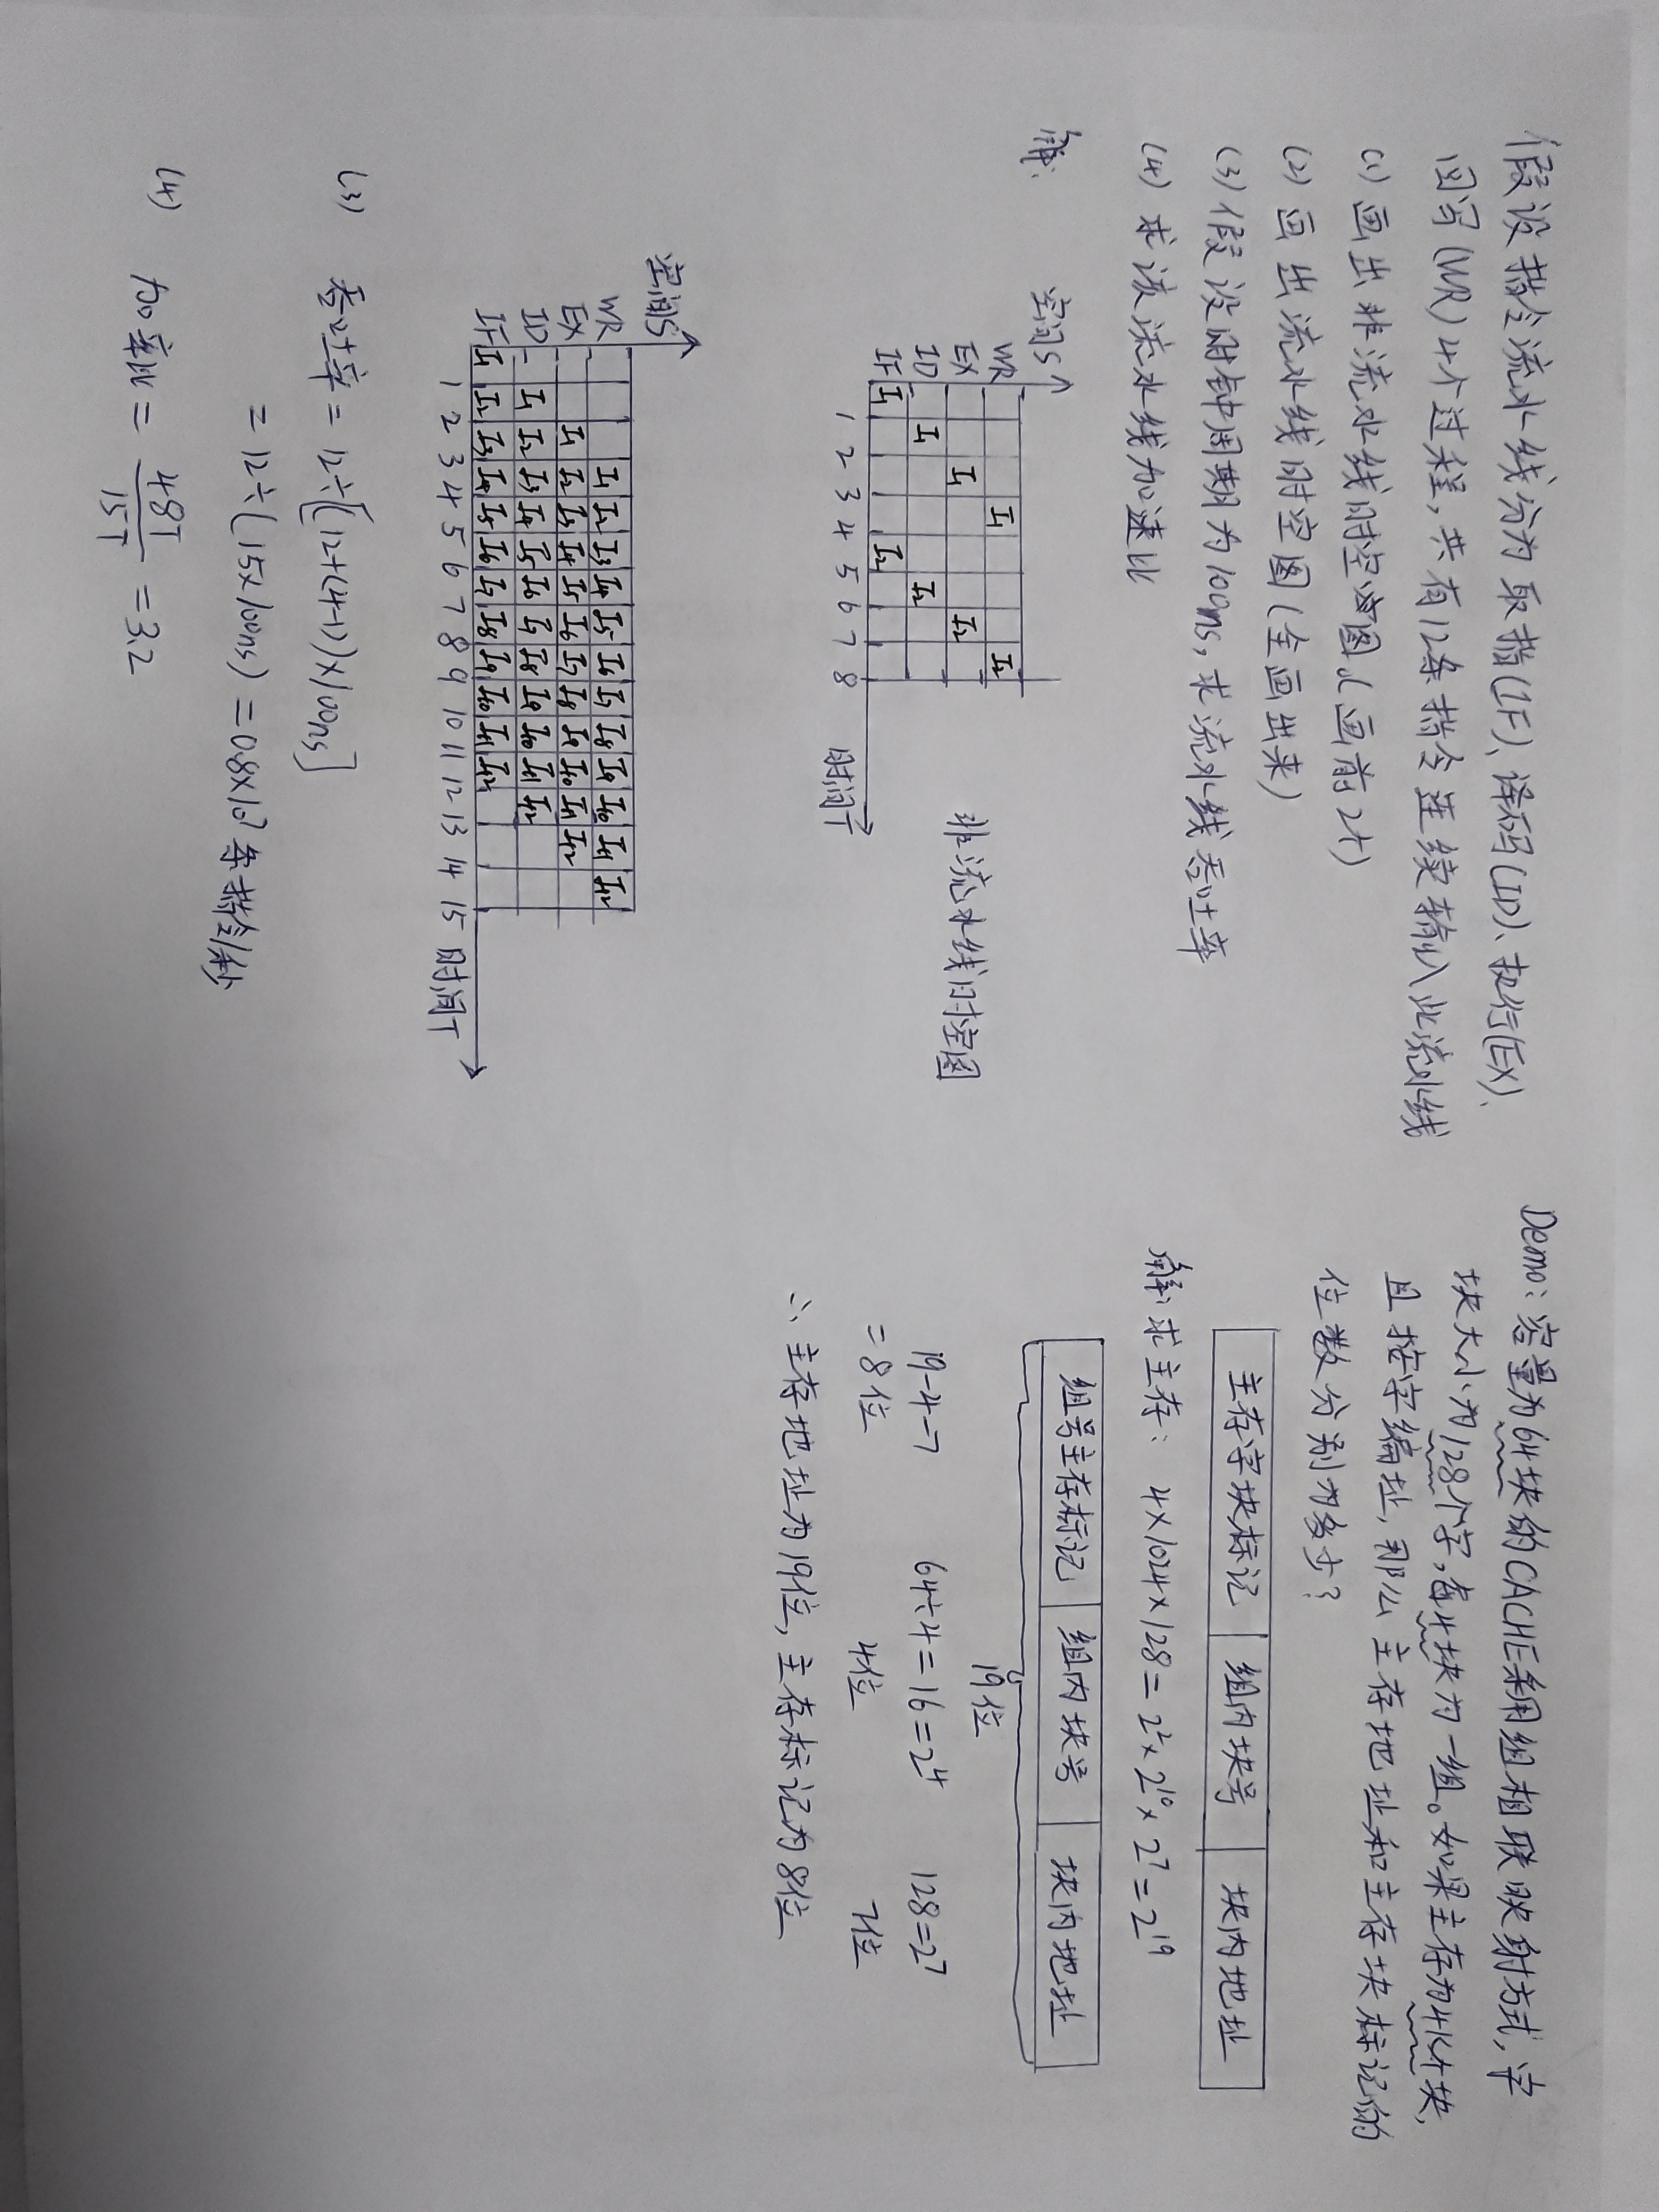 假设指令流水线分为取指(IF)、译码(ID)、执行(EX)、
回写(WR)4个过程,共有12条指令连续输入此流水线
(1)画出非流水线时空图。(画前2个)
(2)画出流水线时空图(全画出来)
(3)假设时钟周期为100ns,求流水线吞吐率
(4)求该流水线加速比
解:
空间S
WR I1 I2
EX I1 I2
ID I1 I2
IF I1 I2
1 2 3 4 5 6 7 8 时间T
非流水线时空图
空间S
WR I1 I2 I3 I4 I5 I6 I7 I8 I9 I10 I11 I12
EX I1 I2 I3 I4 I5 I6 I7 I8 I9 I10 I11 I12
ID I1 I2 I3 I4 I5 I6 I7 I8 I9 I10 I11 I12
IF I1 I2 I3 I4 I5 I6 I7 I8 I9 I10 I11 I12
1 2 3 4 5 6 7 8 9 10 11 12 13 14 15 时间T
(3) 吞吐率=12÷[(12+(4-1))×100ns]
=12÷(15×100ns)=0.8×10⁷条指令/秒
(4) 加率比=48T/15T=3.2
Demo:容量为64块的CACHE采用组相联映射方式,字
块大小为128个字,每4块为一组。如果主存为4K个块,
且按字编址,那么主存地址和主存块标记的
位数分别为多少?
主存字块标记 组内块号 块内地址
解:求主存: 4×1024×128=2²×2¹⁰×2⁷=2¹⁹
组号主存标记 组内块号 块内地址
19位
19-4-7 64÷4=16=2⁴ 128=2⁷
=8位 4位 7位
∴主存地址为19位,主存标记为8位